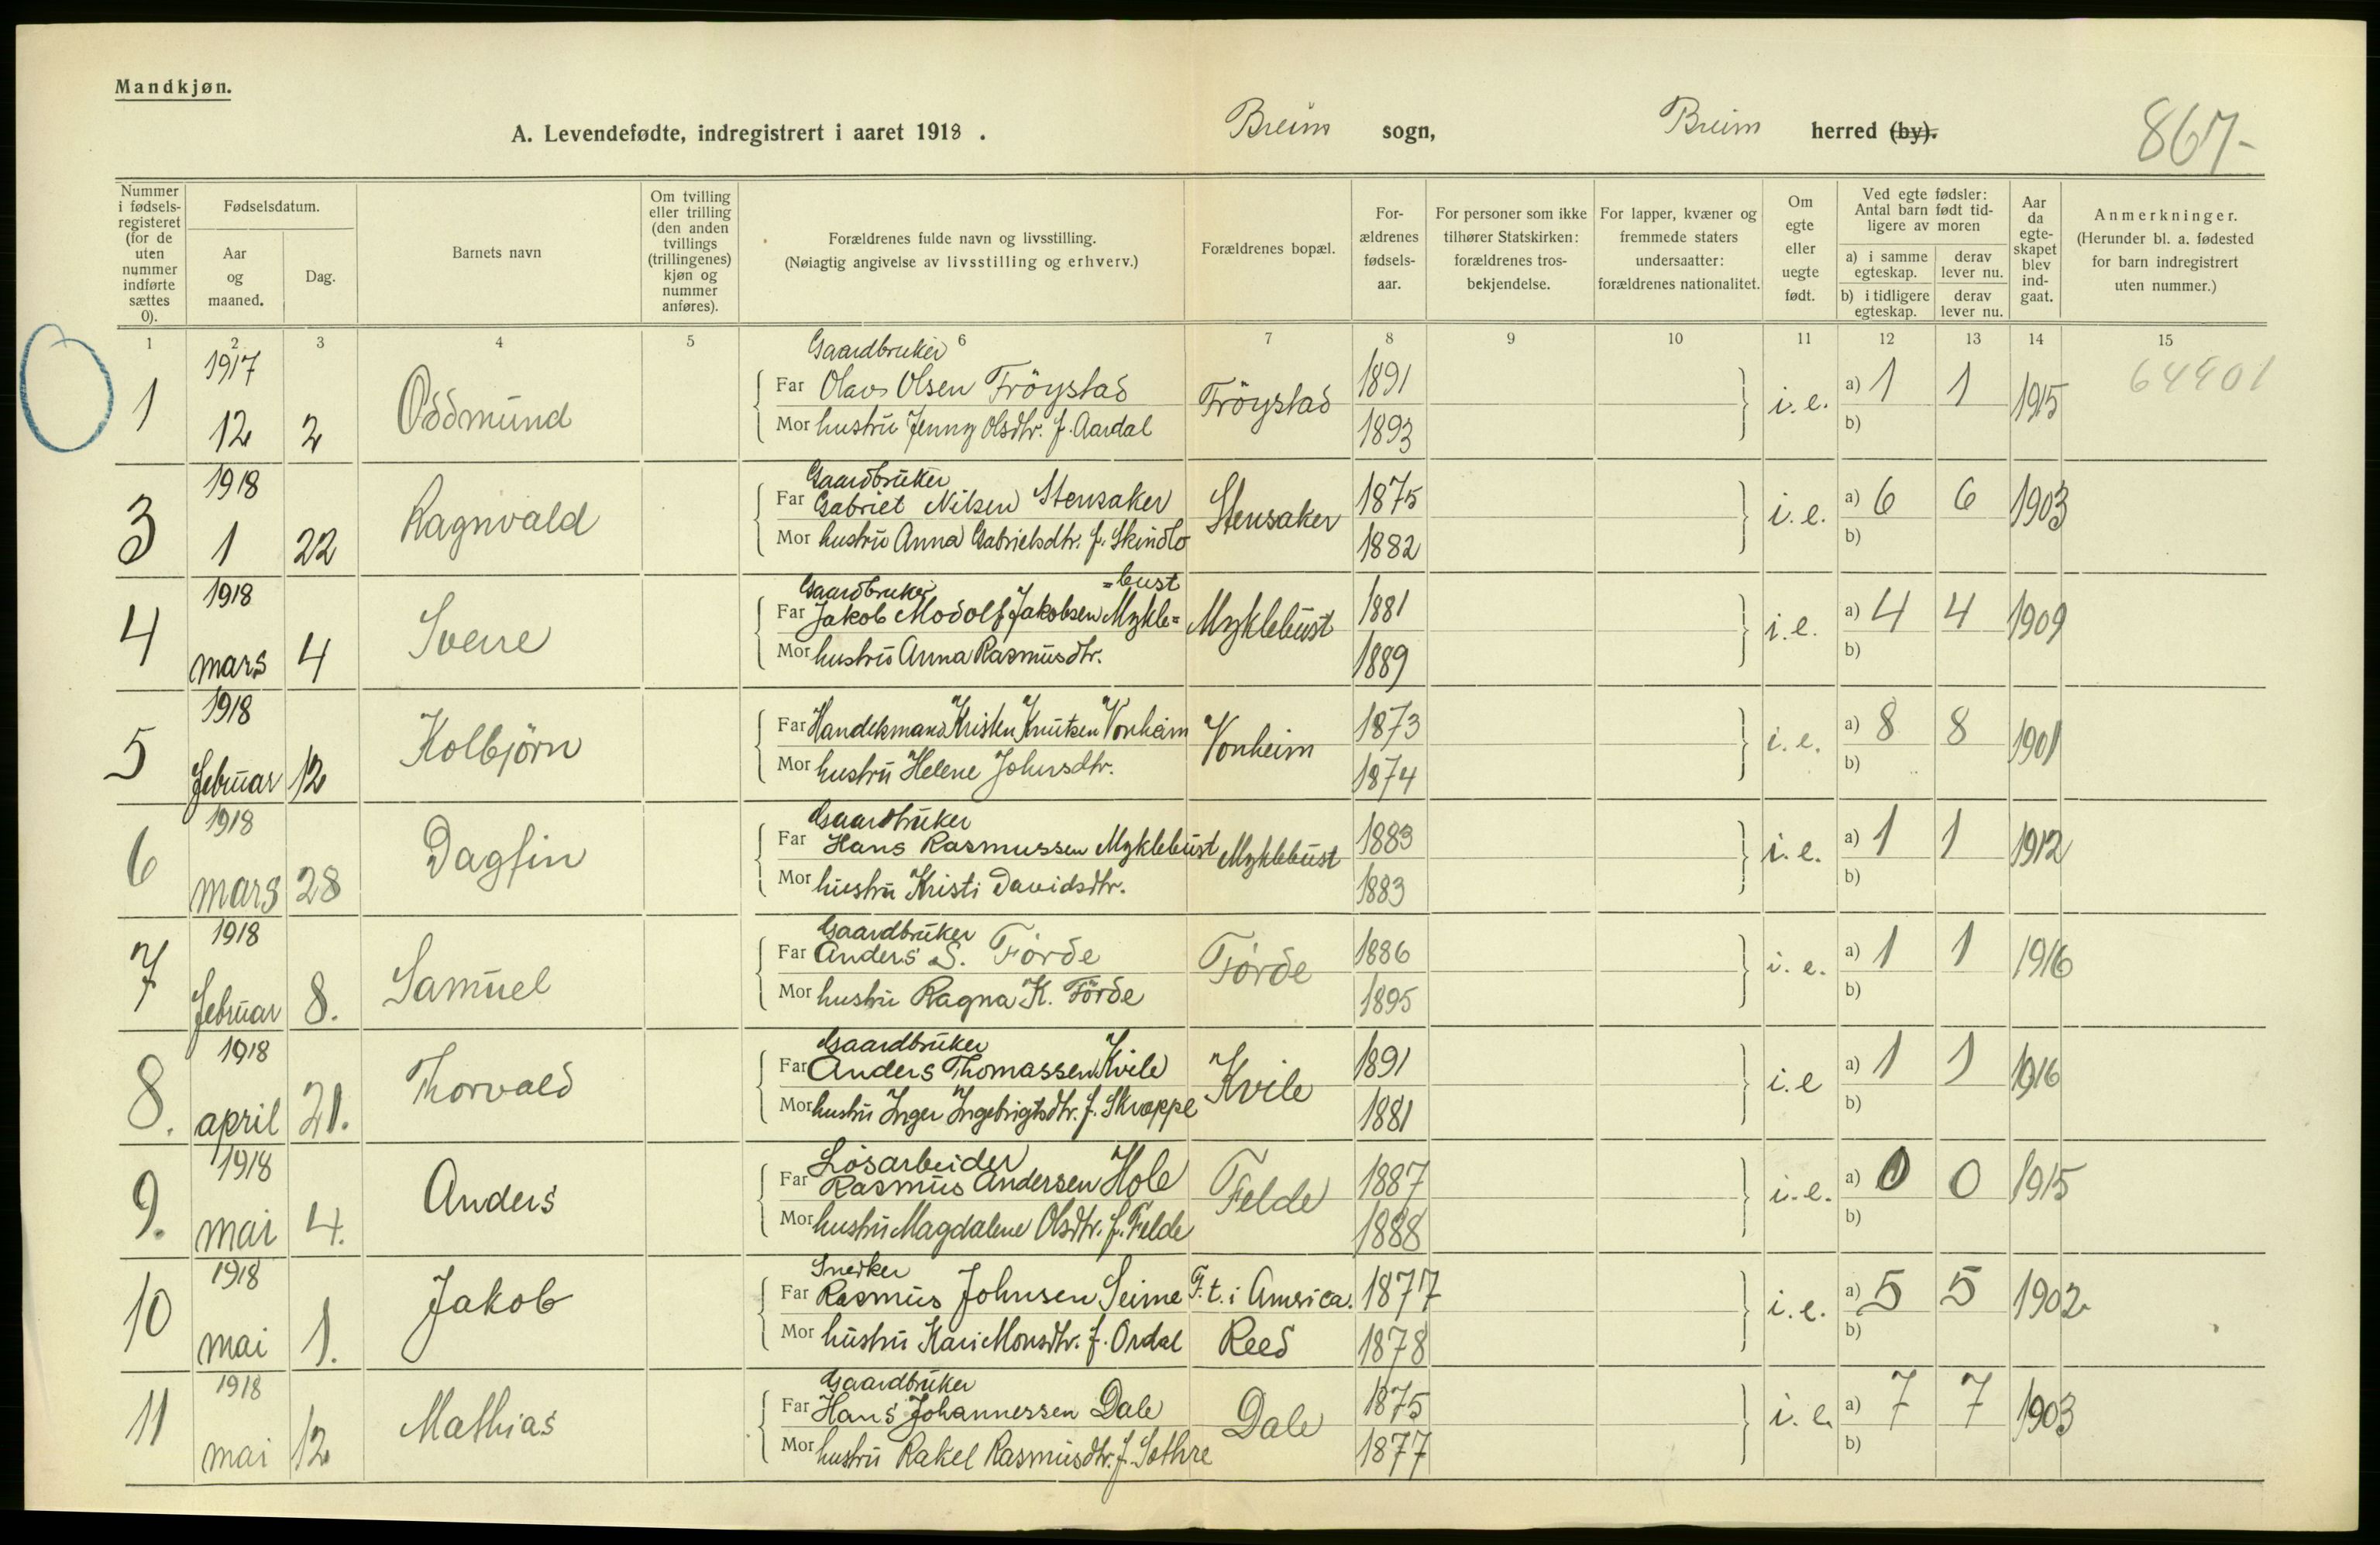 Mandkjøn.
A. Levendefødte, indregistrert i aaret 1918 . Breim sogn, Breim herred (by). 867-
Nummer i fødsels-registeret (for de uten nummer indførte sættes 0).
Fødselsdatum.
Aar og maaned.
Dag.
Barnets navn
Om tvilling eller trilling (den anden tvillings (trillingenes) kjøn og nummer anføres).
Forældrenes fulde navn og livsstilling.
(Nøiagtig angivelse av livsstilling og erhverv.)
Forældrenes bopæl.
For-ældrenes fødsels-aar.
For personer som ikke tilhører Statskirken: forældrenes tros-bekjendelse.
For lapper, kvæner og fremmede staters undersaatter: forældrenes nationalitet.
Om egte eller uegte født.
Ved egte fødsler: Antal barn født tid-ligere av moren
a) i samme egteskap.
derav lever nu.
b) i tidligere egteskap.
derav lever nu.
Aar da egte-skapet blev ind-gaat.
Anmerkninger.
(Herunder bl. a. fødested for barn indregistrert uten nummer.)
1 2 3 4 5 6 7 8 9 10 11 12 13 14 15
1917 Gaardbruker
1 Oddmund Far Olav Olsen Fröystad Fröystad 1891 i.e. a) 1 1 1915 64401
12 2 Mor hustru Jenny Olsdtr. f. Aardal 1893 b)
1918 Gaardbruker
3 Ragnvald Far Gabriel Nilsen Stensaker Stensaker 1875 i.e. a) 6 6 1903
1 22 Mor hustru Anna Gabrielsdtr. f. Skindlo 1882 b)
1918 Gaardbruker =bust
4 Sverre Far Jakob Modolf Jakobsen Mykle= Myklebust 1881 i.e. a) 4 4 1909
mars 4 Mor hustru Anna Rasmusdtr. 1889 b)
1918
5 Kolbjörn Far Handelsmand Kristen Knutsen Vonheim Vonheim 1873 i.e. a) 8 8 1901
februar 12 Mor hustru Helene Johnsdtr. 1874 b)
1918 Gaardbruker
6 Dagfin Far Hans Rasmussen Myklebust Myklebust 1883 i.e. a) 1 1 1912
mars 28 Mor hustru Kristi Davidsdtr. 1883 b)
1918 Gaardbruker
7 Samuel Far Anders S. Förde Förde 1886 i.e. a) 1 1 1916
februar 8. Mor hustru Ragna K. Förde 1895 b)
1918 Gaardbruker
8. Thorvald Far Anders Thomassen Kvile Kvile 1891 i.e a) 1 1 1916
april 21. Mor hustru Inger Ingebrigtsdtr. f. Skrøppe 1881 b)
1918 Lösarbeider
9. Anders Far Rasmus Andersen Hole Felde 1887 i.e. a) 0 0 1915
mai 4. Mor hustru Magdalene Olsdtr. f. Felde 1888 b)
1918 Snedker
10 Jakob Far Rasmus Johnsen Seime F.t. i America. 1877 i.e. a) 5 5 1902
mai 1. Mor hustru Kari Monsdtr. f. Ordal Reed 1878 b)
1918 Gaardbruker
11 Mathias Far Hans Johannessen Dale Dale 1875 i.e. a) 7 7 1903
mai 12 Mor hustru Rakel Rasmusdtr. f. Sothre 1877 b)